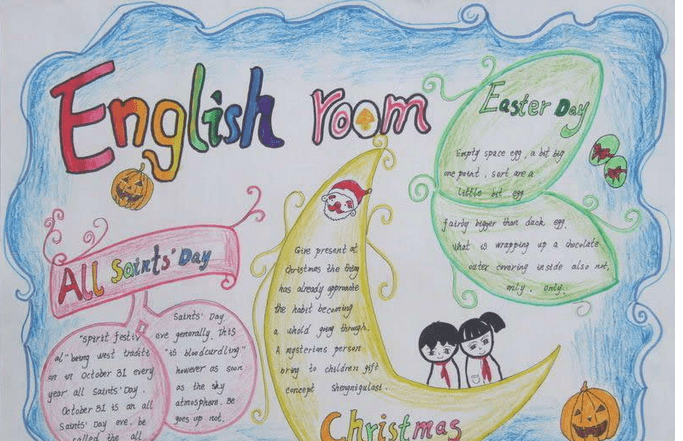 English room
Easter Day
Empty space egg, a bit big
one point, sort are a
little bit egg
fairly bigger than duck egg.
What is wrapping up a chocolate
outer covering inside also not,
only. only.
All Saints' Day
"Spirit festiv
al" being west traditi
on in October 31 every
year all Saints' Day.
October 31 is an all
Saints' Day eve. be
called the all
Saints' Day
eve generally. This
"is bloodcurdling"
however as soon
as the sky
atmosphere. Be
goes up not.
Give present at
Christmas the thing
has already approate
the habit becoming
a whold going through.
A mysterions person
bring to children gift
concept Shengnigulast.
Christmas